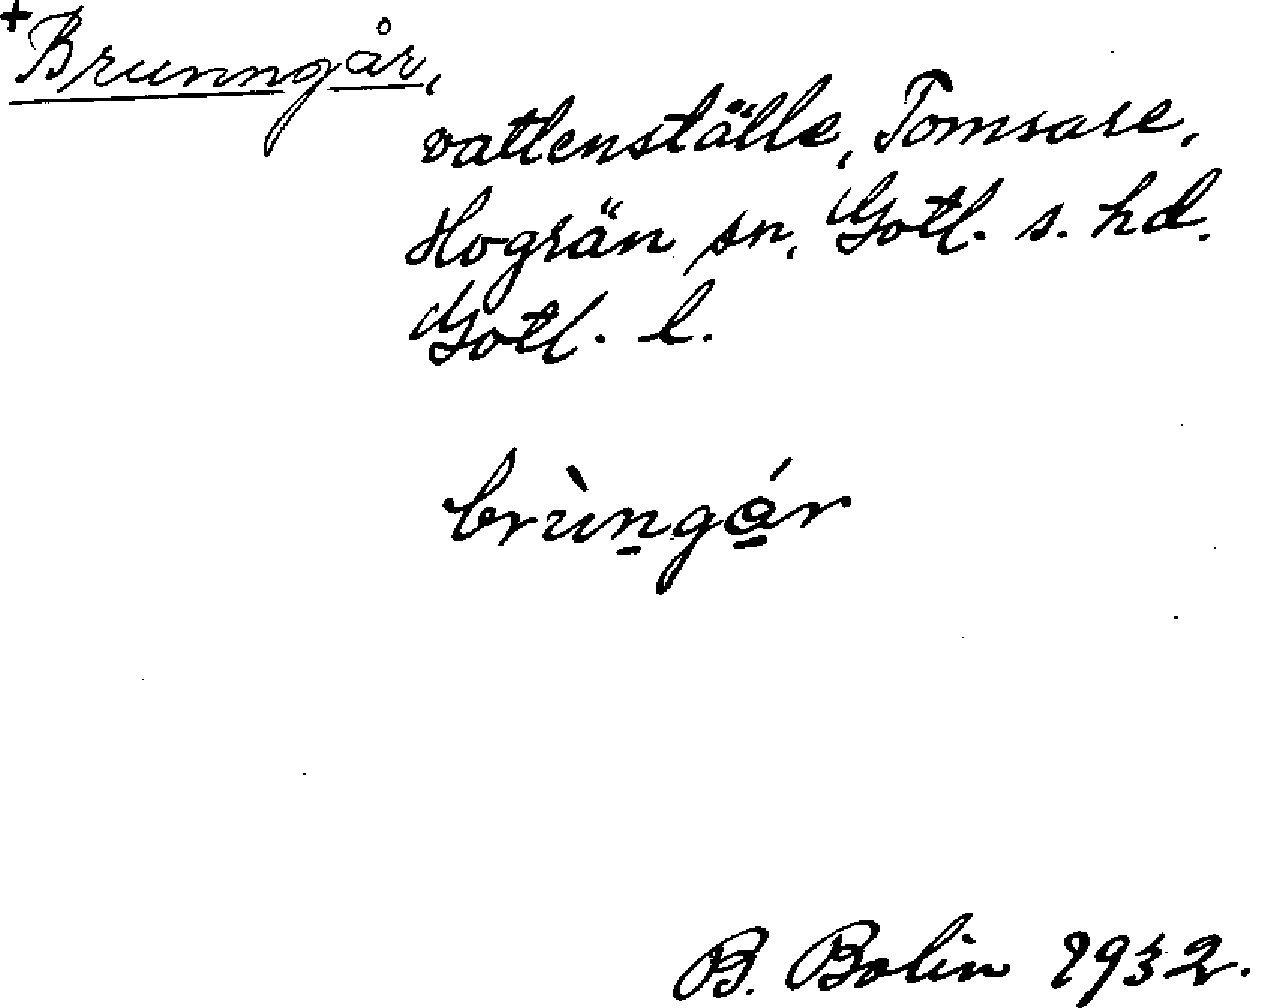 +Brunngår,
vattenställe, Tomsase,
Hogrän sn, Gotl. s. hd.
Gotl. l.
brùn̠gá̠r
B. Bolin 1932.